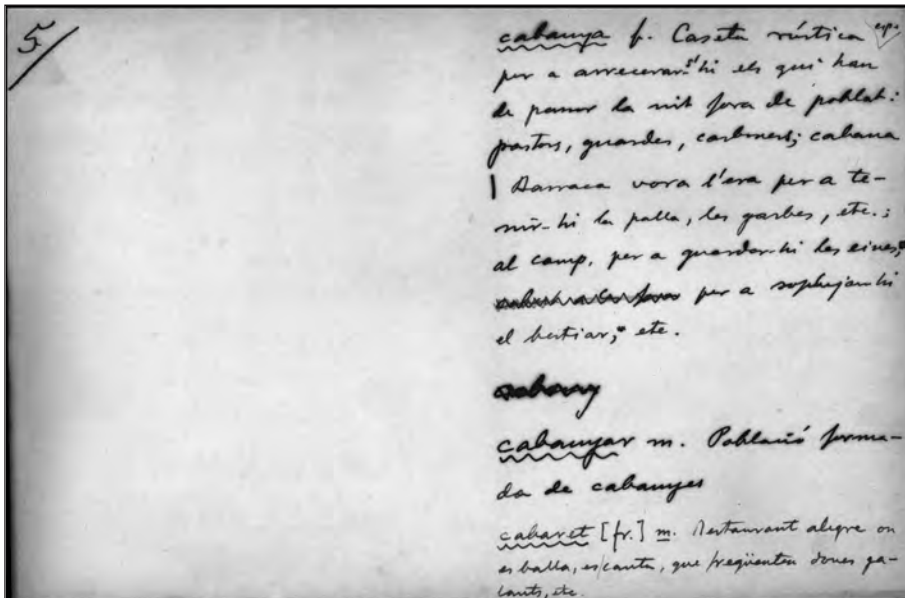 5
cabanya f. Caseta rústica esp.
per a arrecerar-s'hi els qui han
de passar la nit fora de poblat:
pastors, guardes, carboners; cabana
| Barraca vora l'era per a te-
nir-hi la palla, les garbes, etc.;
al camp, per a guardar-hi les eines,
per a soplujar-hi
el bestiar, etc.
cabany
cabanyar m. Població forma-
da de cabanyes
cabaret [fr.] m. Restaurant alegre on
es balla, es canta, que freqüenten dones ga-
lants, etc.